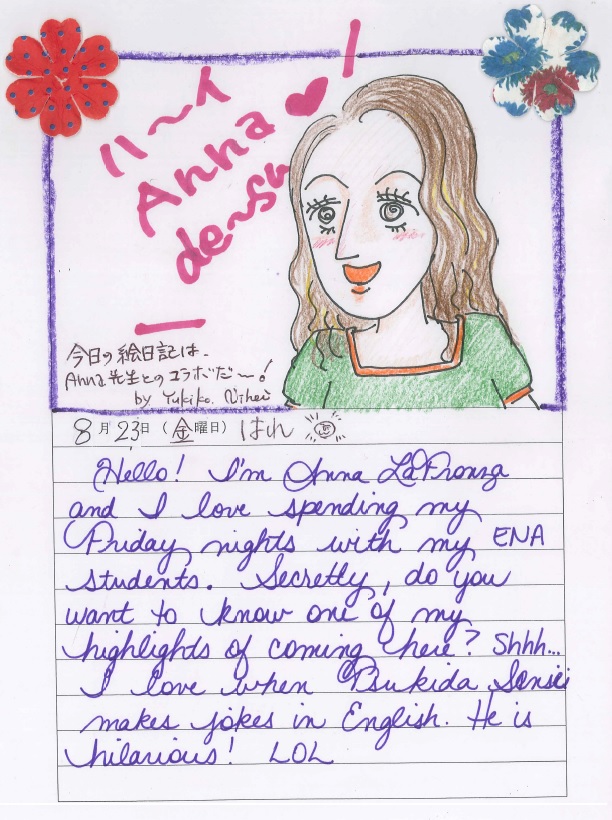 ハ〜イ
Anna
de〜su
♥!
今日の絵日記は、
Anna先生とのコラボだ〜!
by Yukiko. Nihei
8月23日(金曜日) はれ
Hello! I'm Anna LaPronza
and I love spending my
Friday nights with my ENA
students. Secretly, do you
want to know one of my
highlights of coming here? Shhh...
I love when Tsukida Sensei
makes jokes in English. He is
hilarious! LOL